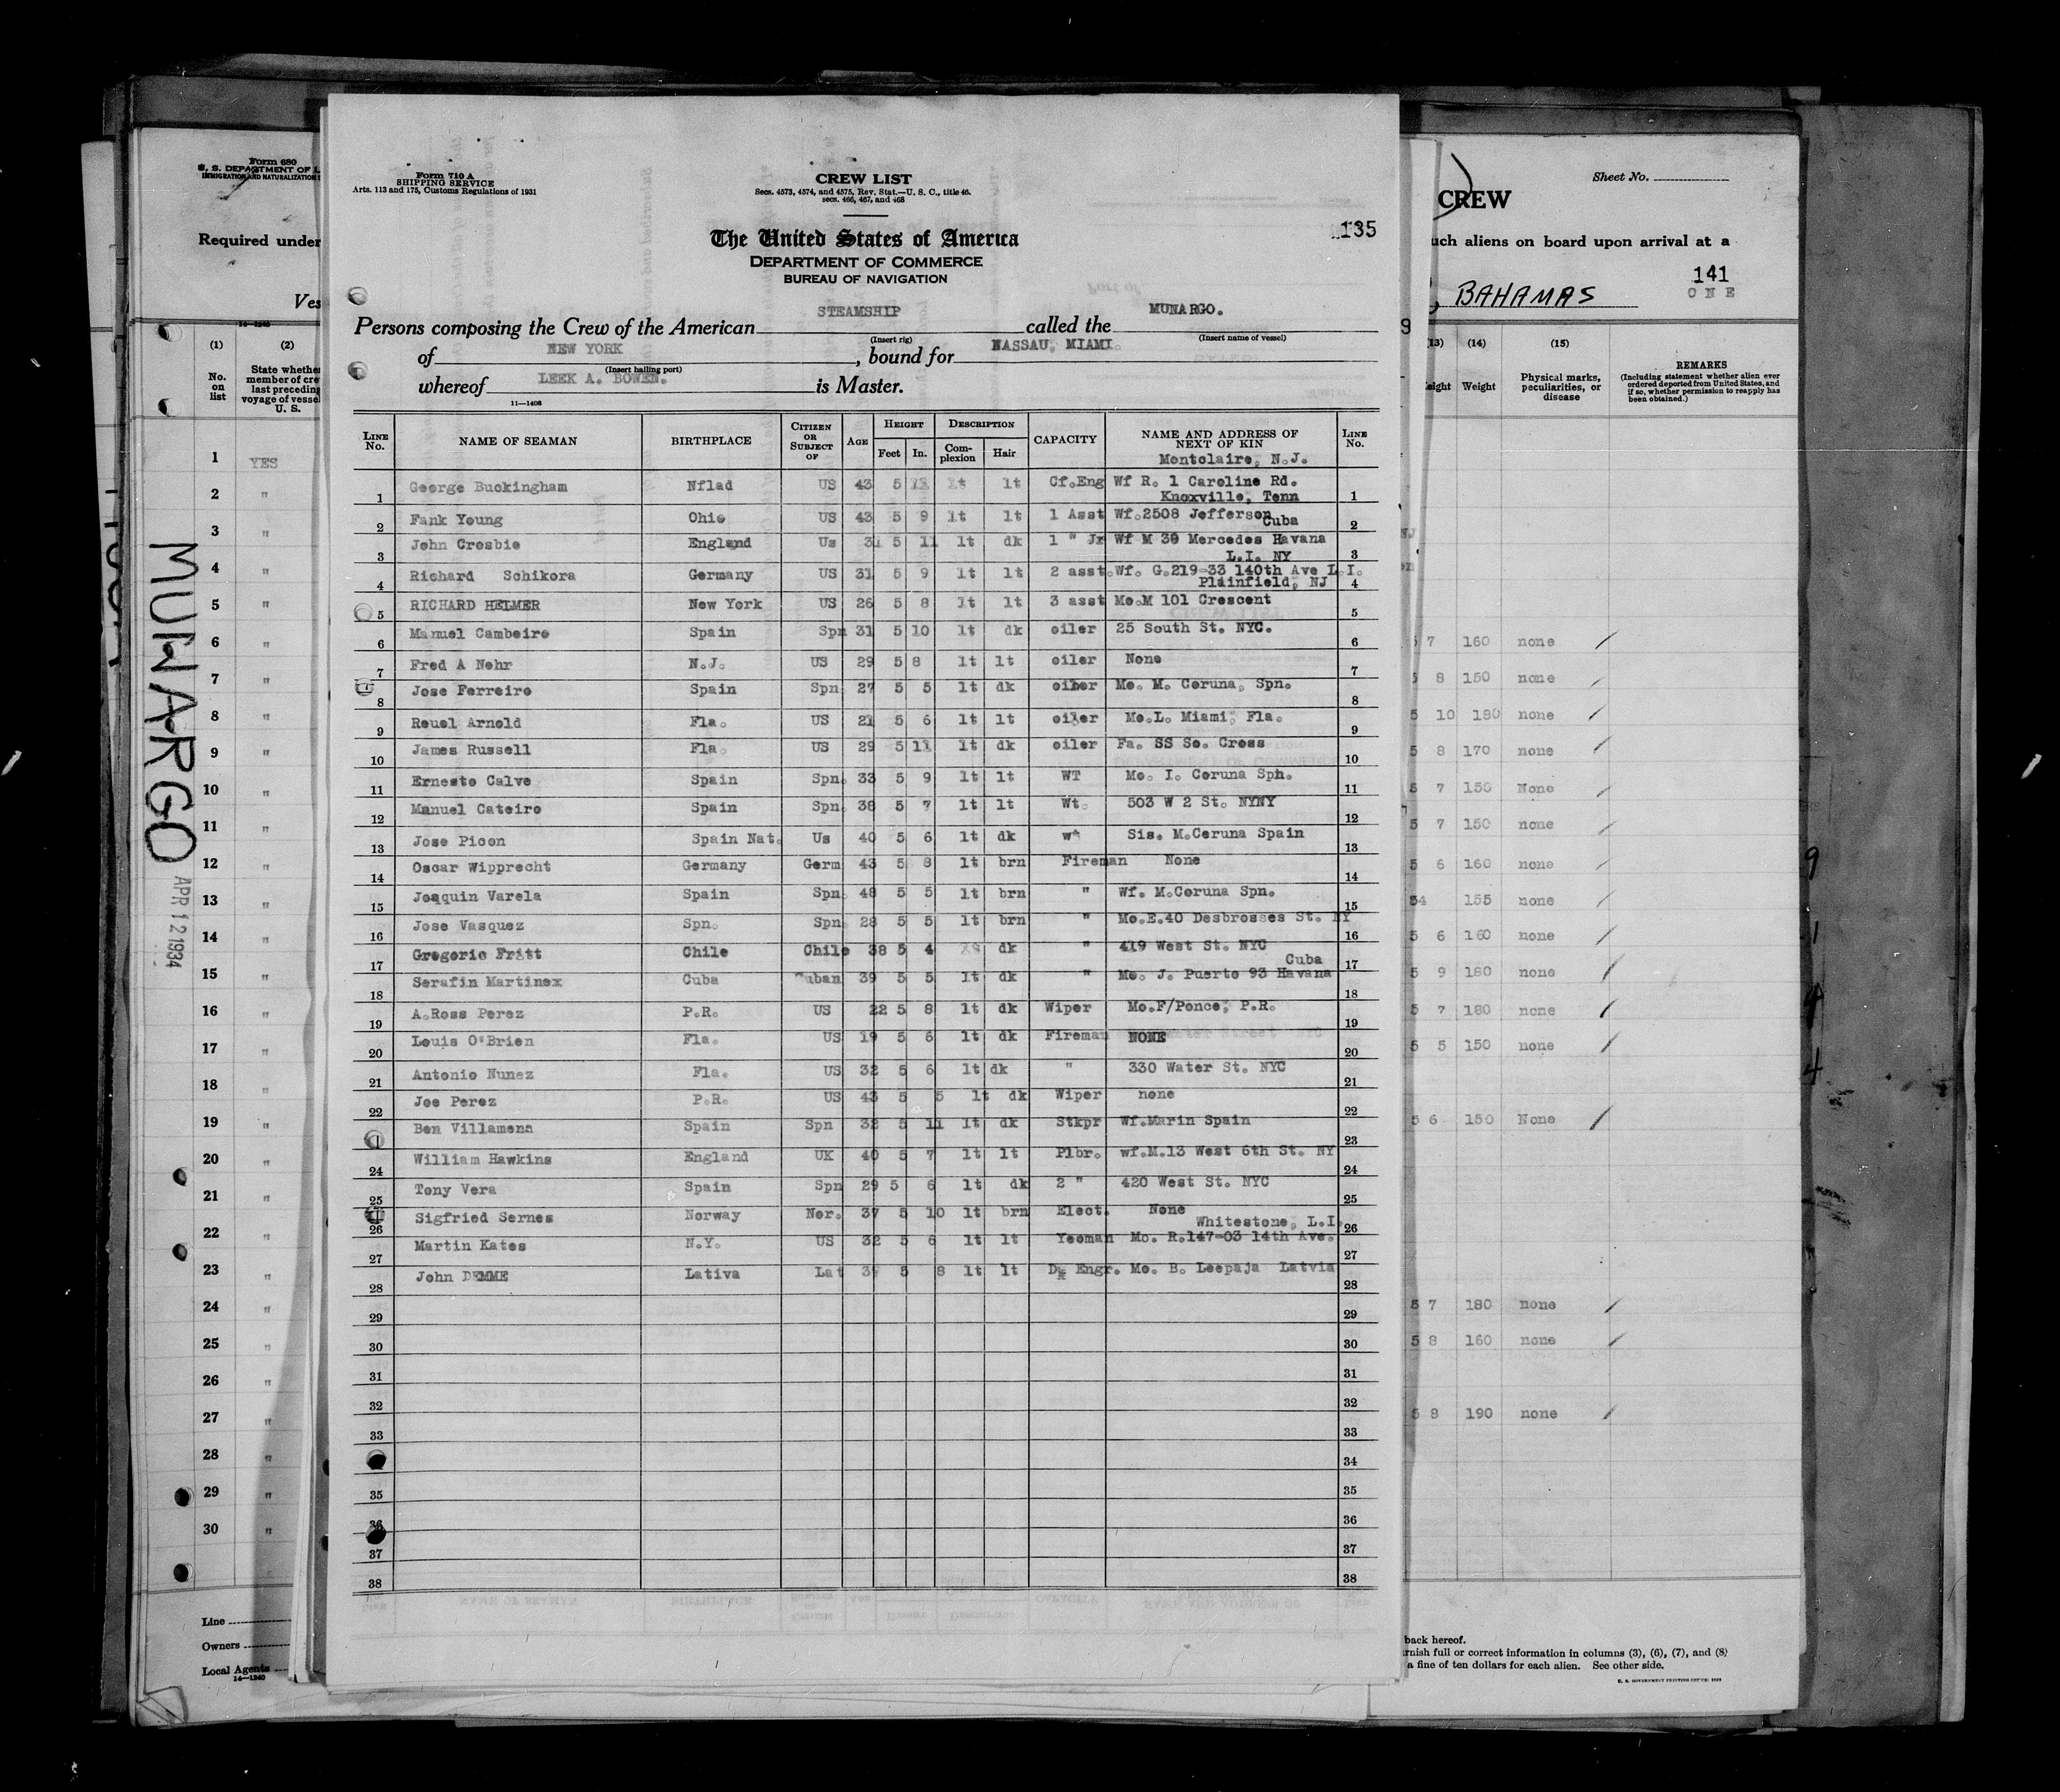 Form 680
U. S. DEPARTMENT OF L
IMMIGRATION AND NATURALIZATION
Required under
Ves
14-1240
(1) (2)
No. on list
State whether
member of cre
last preceding
voyage of vessel
U. S.
1 YES
2 "
3 "
4 "
5 "
6 "
7 "
8 "
9 "
10 "
11 "
12 "
13 "
14 "
15 "
16 "
17 "
18 "
19 "
20 "
21 "
22 "
23 "
24 "
25 "
26 "
27 "
28 "
29 "
30 "
Line
Owners
Local Agents
14-1240
MUNARGO
APR 12 1934
Form 710 A
SHIPPING SERVICE
Arts. 113 and 175, Customs Regulations of 1931
CREW LIST
Secs. 4573, 4574, and 4575, Rev. Stat.—U. S. C., title 46.
secs. 466, 467, and 468
135
The United States of America
DEPARTMENT OF COMMERCE
BUREAU OF NAVIGATION
Persons composing the Crew of the American STEAMSHIP called the MUNARGO.
(Insert rig) (Insert name of vessel)
of NEW YORK, bound for NASSAU, MIAMI.
(Insert hailing port)
whereof LEEK A. BOWEN. is Master.
11-1408
LINE No. NAME OF SEAMAN BIRTHPLACE CITIZEN OR SUBJECT OF AGE HEIGHT Feet In. DESCRIPTION Complexion Hair CAPACITY NAME AND ADDRESS OF NEXT OF KIN LINE No.
Montclaire, N.J.
1 George Buckingham Nflad US 43 5 lt lt Cf.Eng Wf R. 1 Caroline Rd. 1
Knoxville, Tenn
2 Fank Young Ohio US 43 5 9 lt lt 1 Asst Wf.2508 Jefferson 2
Cuba
3 John Crosbie England Us 31 5 11 lt dk 1 " Jr Wf M 39 Mercedes Havana 3
L.I. NY
4 Richard Schikora Germany US 31 5 9 lt lt 2 asst. Wf. G.219-33 140th Ave L.I. 4
Plainfield, NJ
5 RICHARD HELMER New York US 26 5 8 lt lt 3 asst Mo.M 101 Crescent 5
6 Manuel Cambeiro Spain Spn 31 5 10 lt dk oiler 25 South St. NYC. 6
7 Fred A Nehr N.J. US 29 5 8 lt lt oiler None 7
8 Jose Ferreiro Spain Spn 27 5 5 lt dk oiler Mo. M. Coruna, Spn. 8
9 Reuel Arnold Fla. US 21 5 6 lt lt oiler Mo.L. Miami, Fla. 9
10 James Russell Fla. US 29 5 11 lt dk oiler Fa. SS So. Cross 10
11 Ernesto Calvo Spain Spn. 33 5 9 lt lt WT Mo. I. Coruna Spn. 11
12 Manuel Cateiro Spain Spn. 38 5 7 lt lt Wt. 503 W 2 St. NYNY 12
13 Jose Picon Spain Nat. Us 40 5 6 lt dk wt Sis. M.Coruna Spain 13
14 Oscar Wipprecht Germany Germ 43 5 8 lt brn Fireman None 14
15 Joaquin Varela Spain Spn 48 5 5 lt brn " Wf. M.Coruna Spn. 15
16 Jose Vasquez Spn. Spn 28 5 5 lt brn " Mo.E.40 Desbrosses St. NY 16
17 Gregorio Fritt Chile Chile 38 5 4 dk " 419 West St. NYC 17
Cuba
18 Serafin Martinex Cuba Cuban 39 5 5 lt dk " Mo. J. Puerto 93 Havana 18
19 A.Ross Perez P.R. US 22 5 8 lt dk Wiper Mo.F/Ponce, P.R. 19
20 Louis O'Brien Fla. US 19 5 6 lt dk Fireman NONE 20
21 Antonio Nunez Fla. US 32 5 6 lt dk " 330 Water St. NYC 21
22 Joe Perez P.R. US 43 5 5 lt dk Wiper none 22
23 Ben Villamena Spain Spn 32 5 11 lt dk Stkpr Wf.Marin Spain 23
24 William Hawkins England UK 40 5 7 lt lt Plbr. wf.M.13 West 6th St. NY 24
25 Tony Vera Spain Spn 29 5 6 lt dk 2 " 420 West St. NYC 25
26 Sigfried Sernes Norway Nor. 37 5 10 lt brn Elect. None 26
Whitestone, L.I.
27 Martin Kates N.Y. US 32 5 6 lt lt Yeoman Mo. R.147-03 14th Ave. 27
28 John DEMME Lativa Lat 5 8 lt lt Dk Engr. Mo. B. Leepaja Latvia 28
29 29
30 30
31 31
32 32
33 33
34
35 35
36 36
37 37
38 38
Sheet No.
CREW
uch aliens on board upon arrival at a
141
, BAHAMAS ONE
(13) (14) (15)
eight Weight Physical marks, peculiarities, or disease
REMARKS
(Including statement whether alien ever
ordered deported from United States, and
if so, whether permission to reapply has
been obtained.)
5 7 160 none
5 8 150 none
5 10 180 none
5 8 170 none
5 7 155 None
5 7 150 none
5 6 160 none
54 155 none
5 6 160 none
5 9 180 none
5 7 180 none
5 5 150 none
5 6 150 None
5 7 180 none
5 8 160 none
5 8 190 none
9
1
4
4
back hereof.
rnish full or correct information in columns (3), (6), (7), and (8)
a fine of ten dollars for each alien. See other side.